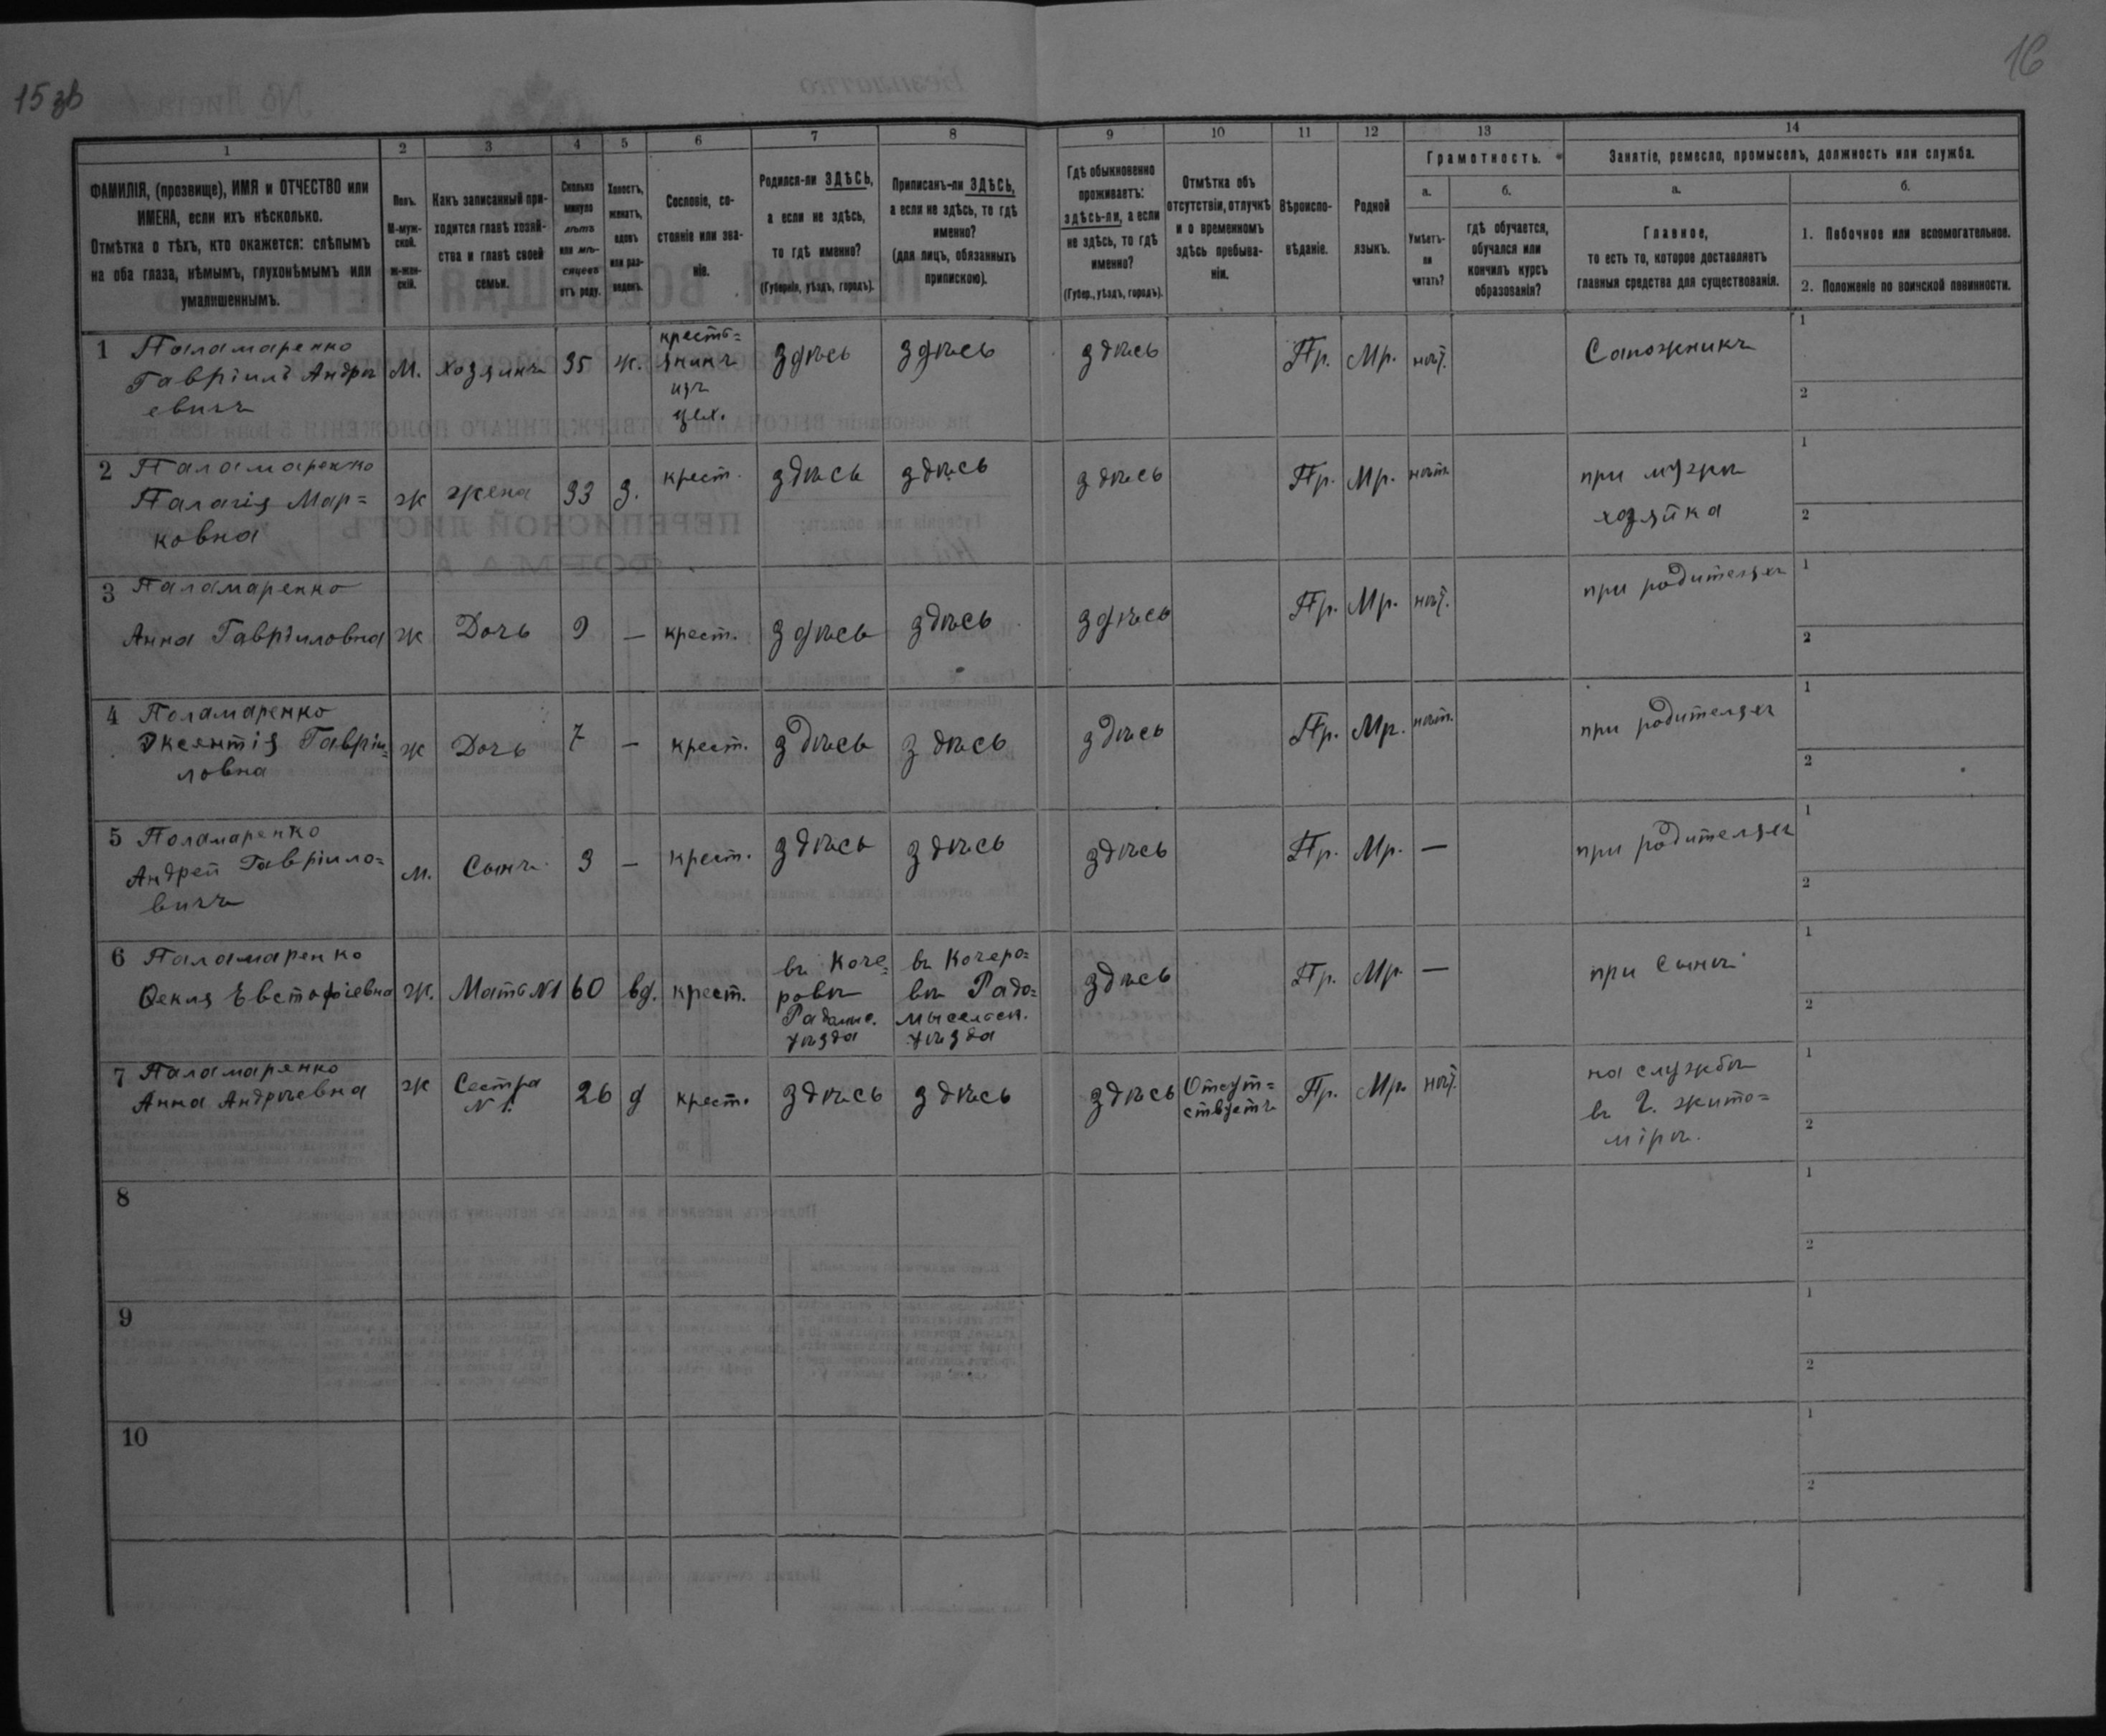 15 зв
16
1
2
3
4
5
6
7
8
9
10
11
12
13
14
ФАМИЛІЯ, (прозвище), ИМЯ и ОТЧЕСТВО или
ИМЕНА, если ихъ нѣсколько.
Отмѣтка о тѣхъ, кто окажется: слѣпымъ
на оба глаза, нѣмымъ, глухонѣмымъ или
умалишеннымъ.
Полъ.
М-муж-
ской.
ж-жен-
скій.
Какъ записанный при-
ходится главѣ хозяй-
ства и главѣ своей
семьи.
Сколько
минуло
лѣтъ
или мѣ-
сяцевъ
отъ роду.
Холостъ,
женатъ,
вдовъ
или раз-
веденъ.
Сословіе, со-
стояніе или зва-
ніе.
Родился-ли ЗДѢСЬ,
а если не здѣсь,
то гдѣ именно?
(Губернія, уѣздъ, городъ).
Приписанъ-ли ЗДѢСЬ,
а если не здѣсь, то гдѣ
именно?
(для лицъ, обязанныхъ
припискою).
Гдѣ обыкновенно
проживаетъ:
здѣсь-ли, а если
не здѣсь, то гдѣ
именно?
(Губер., уѣздъ, городъ).
Отмѣтка объ
отсутствіи, отлучкѣ
и о временномъ
здѣсь пребыва-
ніи.
Вѣроиспо-
вѣданіе.
Родной
языкъ.
Грамотность.
а.
Умѣетъ-
ли
читать?
б.
гдѣ обучается,
обучался или
кончилъ курсъ
образованія?
Занятіе, ремесло, промыселъ, должность или служба.
а.
Главное,
то есть то, которое доставляетъ
главныя средства для существованія.
б.
1. Побочное или вспомогательное.
2. Положеніе по воинской повинности.
1 Паламаренко
Гавріилъ Андрѣ
евичъ
М.
хозяинъ
35
ж.
кресть=
янинъ
изъ
цех.
здѣсь
здѣсь
здѣсь
Пр.
Мр.
нѣт.
Сапожникъ
1
2
2 Паламаренко
Палагія Мар=
ковна
ж
жена
33
з.
крест.
здѣсь
здѣсь
здѣсь
Пр.
Мр.
нѣт.
при мужѣ
хозяйка
1
2
3 Паламаренко
Анна Гавріиловна
ж
Дочь
9
—
крест.
здѣсь
здѣсь
здѣсь
Пр.
Мр.
нѣт.
при родителяхъ
1
2
4 Поламаренко
Гавріи=
ловна
ж
Дочь
7
—
крест.
здѣсь
здѣсь
здѣсь
Пр.
Мр.
нѣт.
при родителяхъ
1
2
5 Поламаренко
Андрей Гавріило=
вичъ
м.
Сынъ
3
—
крест.
здѣсь
здѣсь
здѣсь
Пр.
Мр.
—
при родителяхъ
1
2
6 Паламаренко
Ѳекля Евстафіевна
Ж.
Мать №1
60
вд.
крест.
въ Коче=
ровѣ
Радомыс.
уѣзда
въ Кочеро=
вѣ Радо=
мысельск.
уѣзда
здѣсь
Пр.
Мр.
—
при сынѣ
1
2
7 Паламаренко
Анна Андрѣевна
ж
Сестра
№ 1.
26
д
крест.
здѣсь
здѣсь
здѣсь
Отсут=
ствуетъ
Пр.
Мр.
нѣт.
на службѣ
въ г. Жито=
мірѣ.
1
2
8
1
2
9
1
2
10
1
2